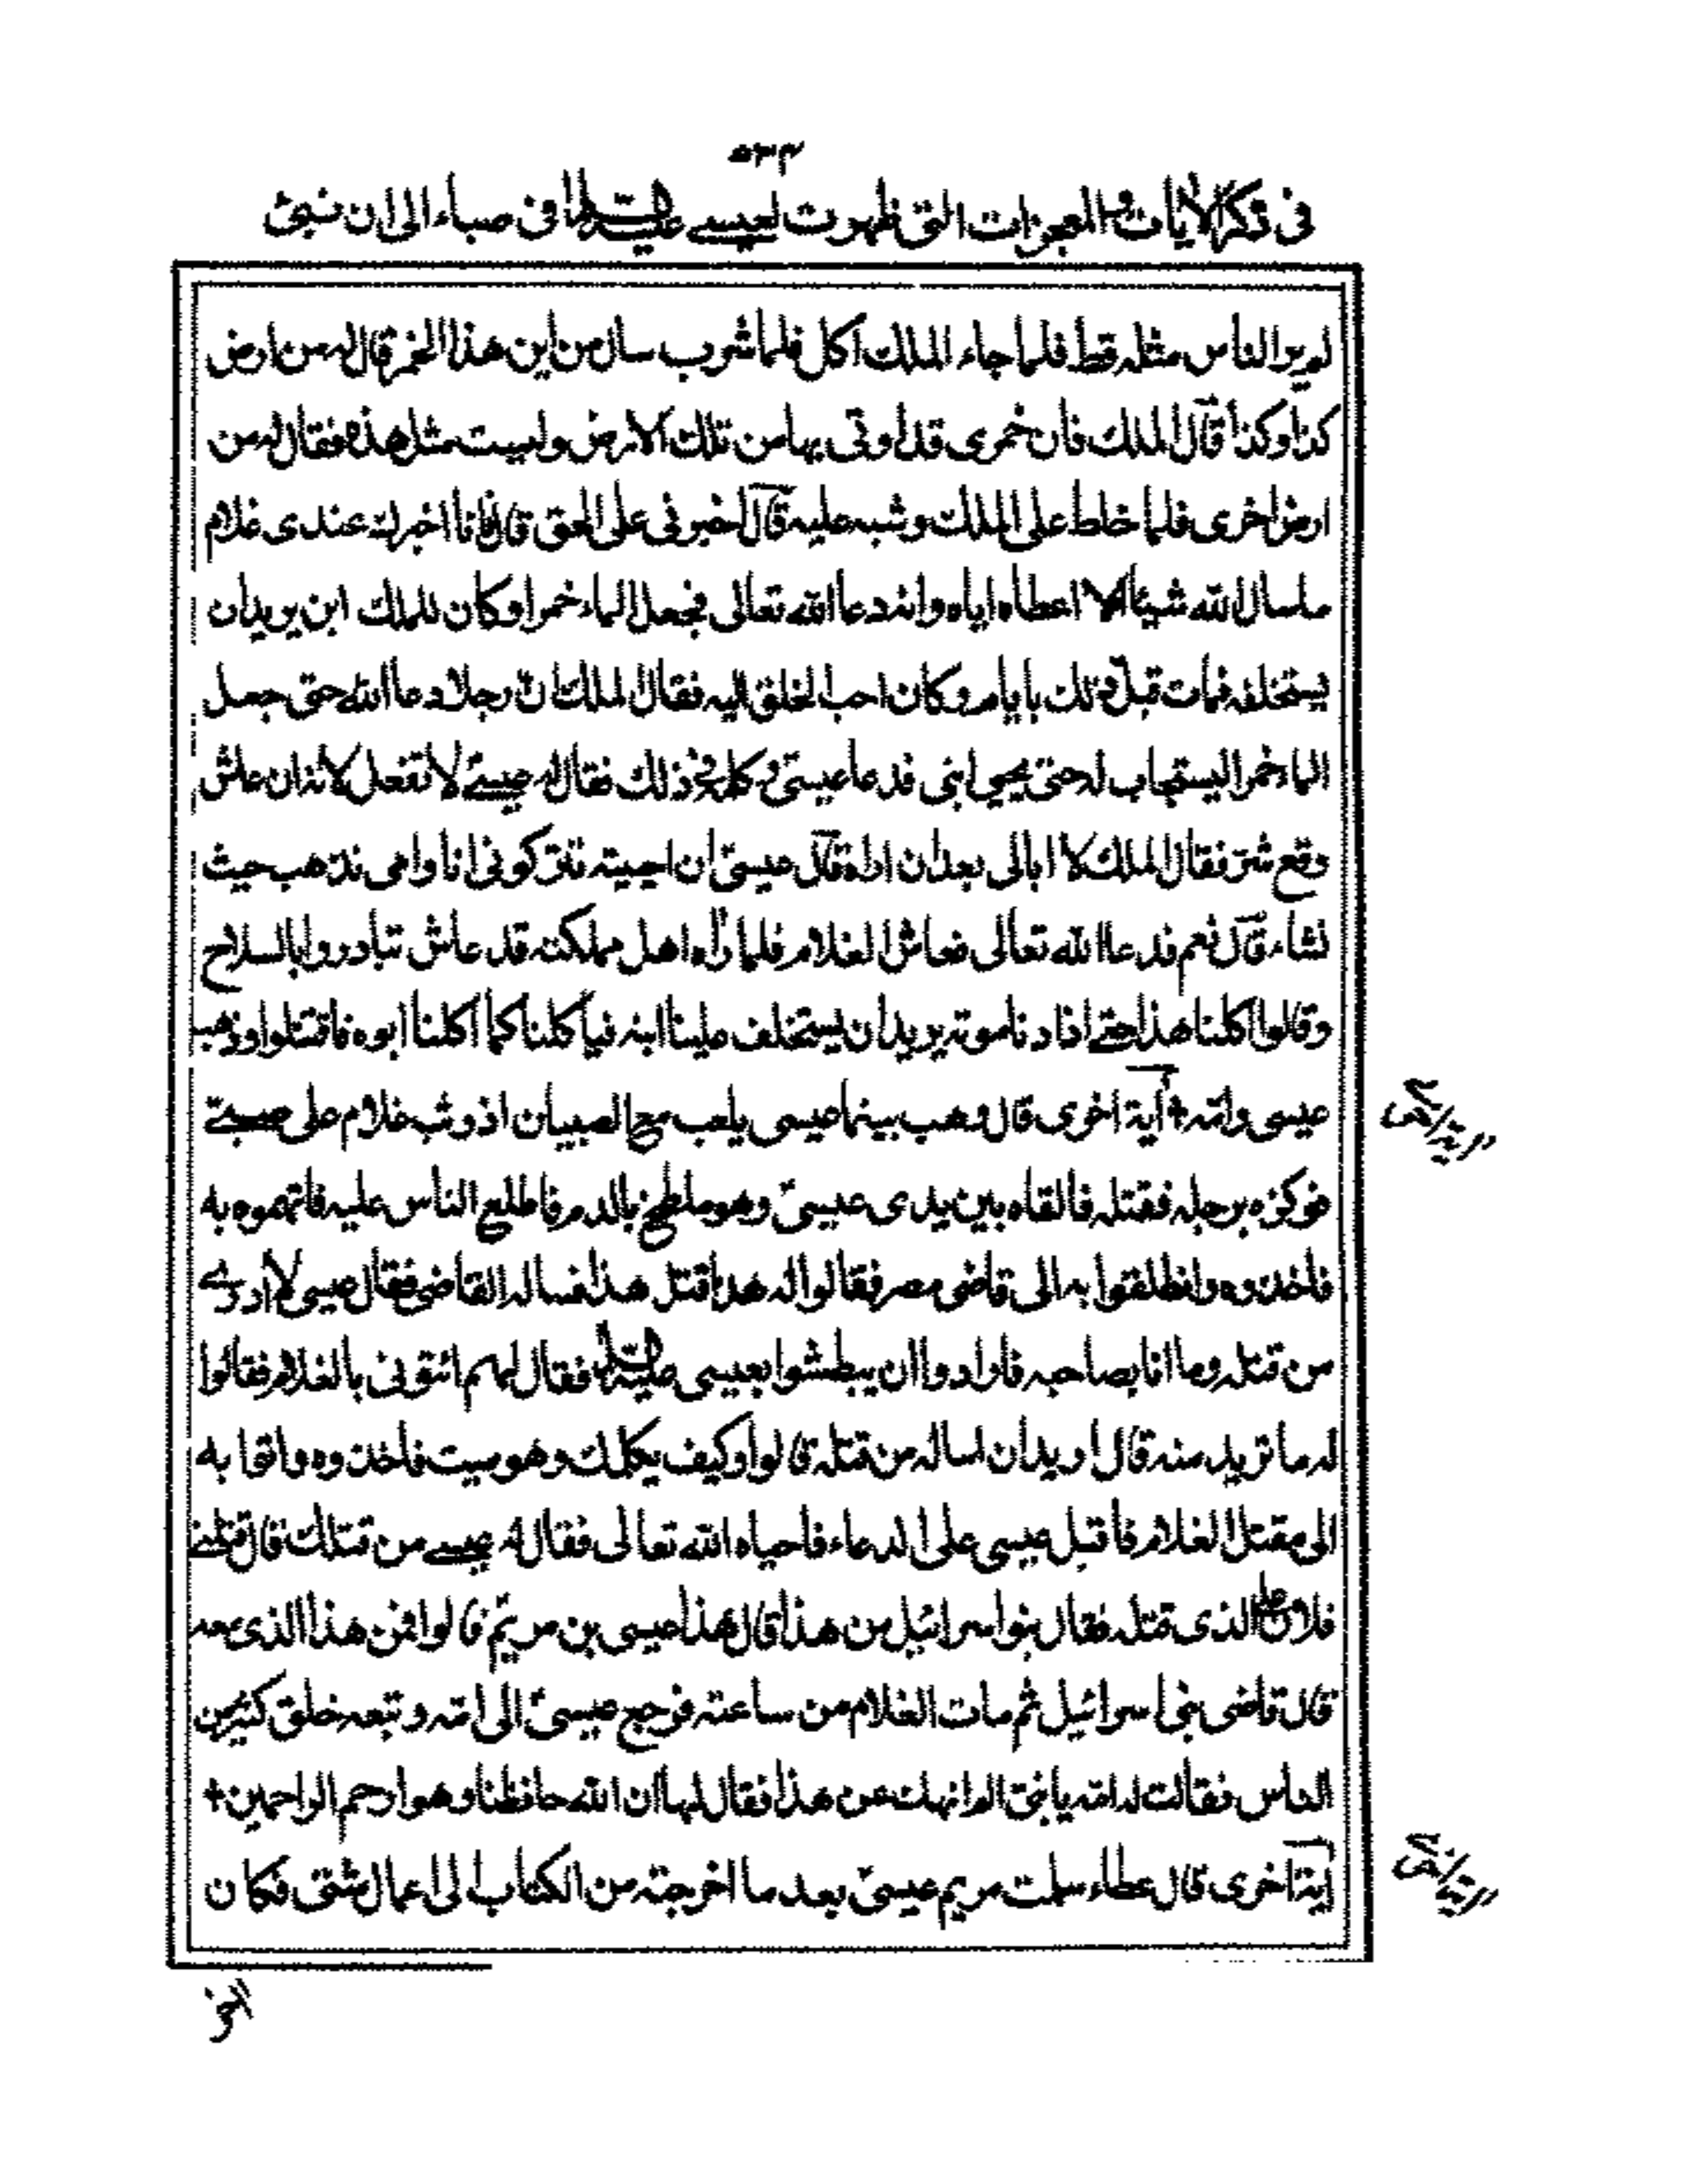 ۵۳۴
في ذكر الآيات والمعجزات التي ظهرت لعيسى عليه السلام في صباه الى ان نبئ
لم ير الناس مثله قط فلما جاء الملك اكل فلما شرب سال من اين هذا الخمر قال له من ارض
كذا وكذا قال الملك فان خمري قد اوتى بها من تلك الارض وليست مثل هذه فقال له من
ارض اخرى فلما خلط على الملك وشبه عليه قال اخبرني على الحق قال فانا اخبرك عندي غلام
ما سال الله شيئا الا اعطاه اياه وانه دعا الله تعالى فجعل الماء خمرا وكان للملك ابن يريد ان
يستخلفه فمات قبل ذلك بايام وكان احب الخلق اليه فقال الملك ان رجلا دعا الله حتى جعل
الماء خمرا ليستجاب له حتى يحيى ابني فدعا عيسى وكلمه في ذلك فقال له عيسى لا تفعل لانه ان عاش
وقع شر فقال الملك لا ابالى بعد ان اراه قال عيسى ان احييته تتركوني انا وامي نذهب حيث
نشاء قال نعم فدعا الله تعالى فعاش الغلام فلما رآه اهل مملكته قد عاش تبادروا بالسلاح
وقالوا اكلنا هذا حتى اذا دنا موته يريد ان يستخلف علينا ابنه فياكلنا كما اكلنا ابوه فاقتتلوا وذهب
عيسى وامه + آية اخرى قال وهب بينما عيسى يلعب مع الصبيان اذ وثب غلام على صبي
فوكزه برجله فقتله فالقاه بين يدى عيسى وهو ملطخ بالدم فاطلع الناس عليه فاتهموه به
فاخذوه وانطلقوا به الى قاضى مصر فقالوا له هذا قتل هذا فساله القاضى فقال عيسى لا ادرى
من قتله وما انا بصاحبه فارادوا ان يبطشوا بعيسى عليه السلام فقال لهم ائتونى بالغلام فقالوا
له ما تريد منه قال اريد ان اساله من قتله قالوا وكيف يكلمك وهو ميت فاخذوه واتوا به
الى مقتل الغلام فاقبل عيسى على الدعاء فاحياه الله تعالى فقال له عيسى من قتلك قال قتلني
فلان يعني الذى قتله فقال بنوا سرائيل من هذا قال هذا عيسى بن مريم قالوا فمن هذا الذى معه
قال قاضى بنى اسرائيل ثم مات الغلام من ساعته فرجع عيسى الى امه وتبعه خلق كثير من
الناس فقالت له امه يا بني الم انهك عن هذا فقال لها ان الله حافظنا وهو ارحم الراحمين +
آية اخرى قال عطاء سلمت مريم عيسى بعد ما اخرجته من الكتاب الى اعمال شتى فكان
آية اخرى
آية اخرى
آخر